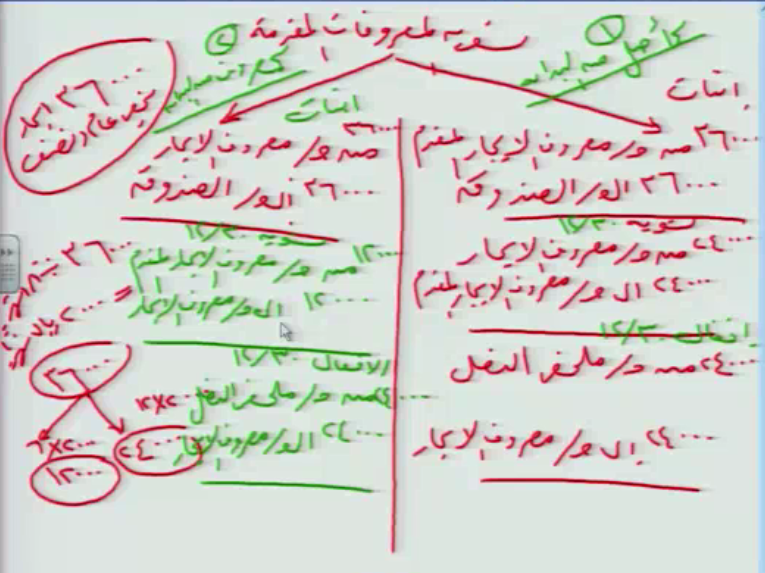 تسوية المصروفات المقدمة
١ كأصل من البداية
إثبات
٣٦٠٠٠ من ح/ مصروف الإيجار المقدم
٣٦٠٠٠ الى ح/ الصندوق
تسوية ١٢/٣٠
٢٤٠٠٠ من ح/ مصروف الايجار
٢٤٠٠٠ الى ح/ مصروف الايجار المقدم
إقفال ١٢/٣٠
٢٤٠٠٠ من ح/ ملخص الدخل
٢٤٠٠٠ إلى ح/ مصروف الايجار
٢ كمصروف من البداية
اثبات
٣٦٠٠٠ من ح/ مصروف الايجار
٣٦٠٠٠ الى ح/ الصندوق
تسوية ١٢/٣٠
١٢٠٠٠ من ح/ مصروف الايجار المقدم
١٢٠٠٠ الى ح/ مصروف الايجار
الاقفال ١٢/٣٠
٢٤٠٠٠ من ح/ ملخص الدخل
٢٤٠٠٠ الى ح/ مصروف الايجار
٣٦٠٠٠ ايجار
عام ونصف
٣٦٠٠٠
= ٢٠٠٠ ريال
٣٦٠٠٠
١٢×٢٠٠٠
٢٤٠٠٠
٦×٢٠٠٠
١٢٠٠٠